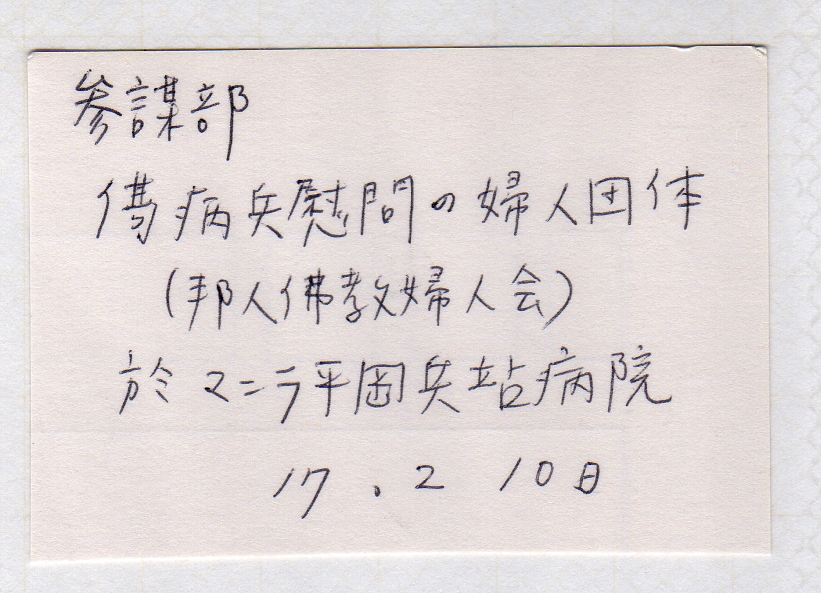 参謀部
傷病兵慰問の婦人団体
(邦人佛教婦人会)
於マニラ平岡兵站病院
17.2 10日